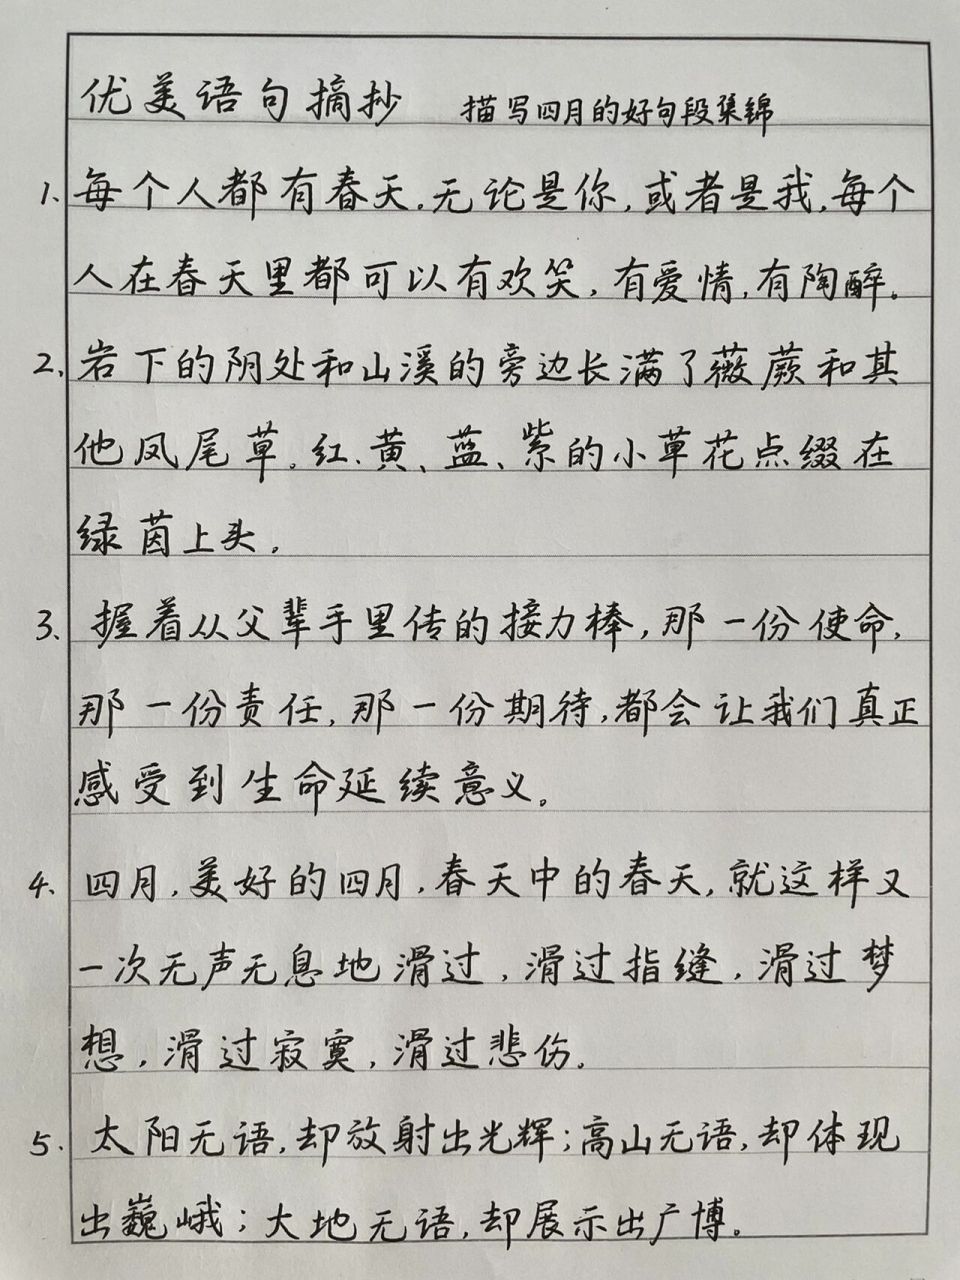 优美语句摘抄 描写四月的好句段集锦
1、每个人都有春天，无论是你，或者是我，每个
人在春天里都可以有欢笑，有爱情，有陶醉。
2、岩下的阴处和山溪的旁边长满了薇蕨和其
他凤尾草。红、黄、蓝、紫的小草花点缀在
绿茵上头。
3、握着从父辈手里传的接力棒，那一份使命，
那一份责任，那一份期待，都会让我们真正
感受到生命延续意义。
4、四月，美好的四月，春天中的春天，就这样又
一次无声无息地滑过，滑过指缝，滑过梦
想，滑过寂寞，滑过悲伤。
5、太阳无语，却放射出光辉；高山无语，却体现
出巍峨；大地无语，却展示出广博。